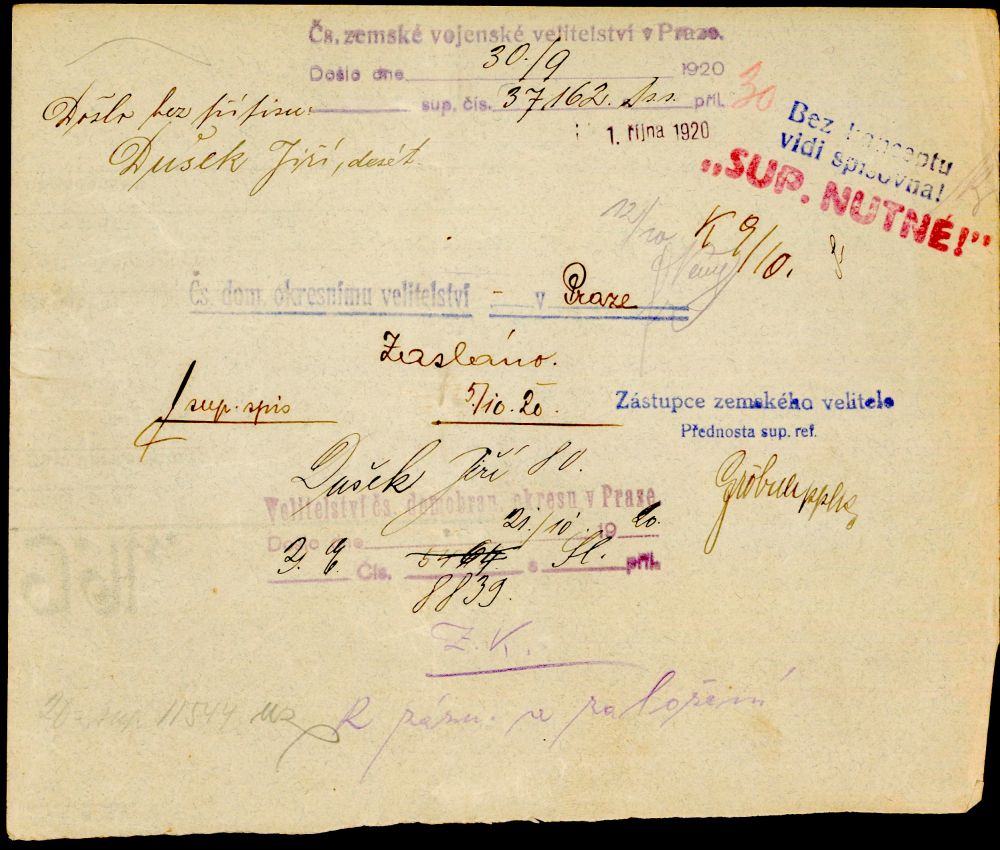 Čs. zemské vojenské velitelství v Praze.
Došlo dne 30./9 1920
sup. čís. 37.162. příl. 30
1. října 1920
Došlo bez přípisu.
Dušek Jiří, desét.
Bez konceptu
vidi spisovna!
„SUP. NUTNÉ!"
12/10
K 9/10.
Čs. dom. okresnímu velitelství - v Praze
Zasláno.
1 sup. spis 5./10.20.
Zástupce zemského velitele
Přednosta sup. ref.
Dušek Jiří 80.
Velitelství čs. domobran. okresu v Praze
Došlo dne 21./10. 1920.
Čís. s příl.
8839.
Z.K.
K zázn. a založení
11544